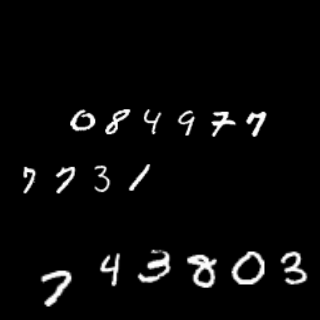 084977
7731
743803